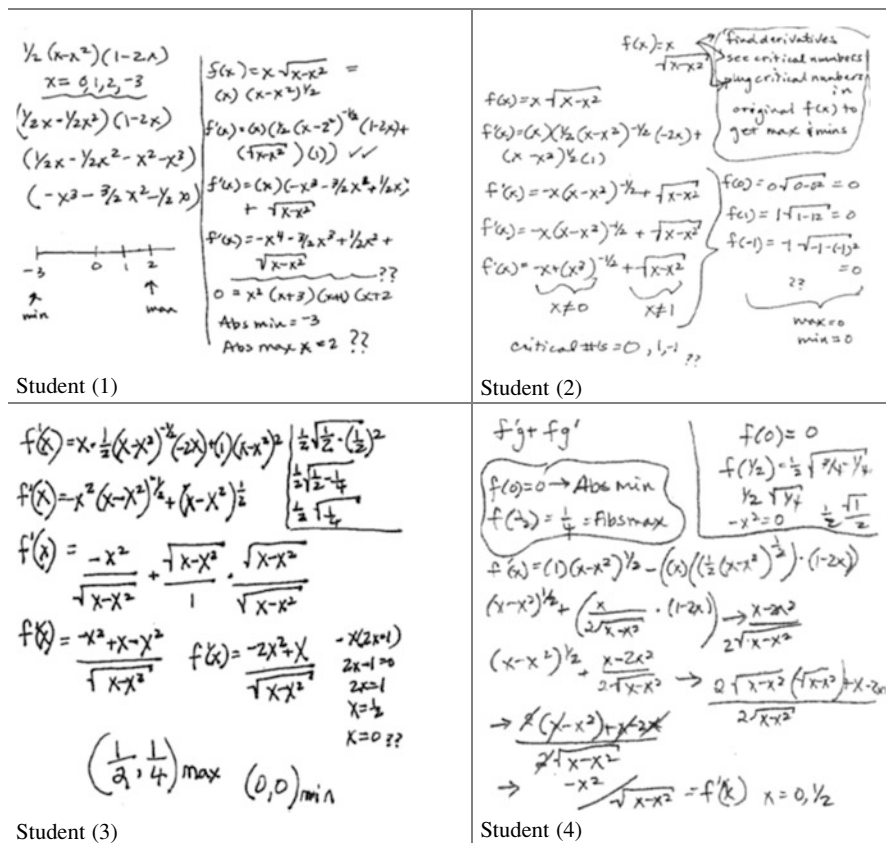 ½ (x-x²)(1-2x)
x = 0,1,2,-3
(½x-½x²)(1-2x)
(½x-½x²-x²-x³)
(-x³-3/2x²-½x)
-3 0 1 2
↑ ↑
min max
f(x) = x √x-x² =
(x) (x-x²)½
f'(x) = (x)(½(x-2²)-½(1-2x)+
(√x-x²)(1)) ✓✓
f'(x) = (x)(-x³-3/2x²+½x)
+ √x-x²
f'(x) = -x⁴-3/2x³+½x²+
√x-x²
??
0 = x²(x+3)(x+1)(x+2
Abs min = -3
Abs max x = 2 ??
Student (1)
f(x) = x √x-x²
find derivatives
see critical numbers
plug critical numbers
in
original f(x) to
get max & mins
f(x) = x √x-x²
f'(x) = (x)(½(x-x²)-½(-2x)+
(x-x²)½(1)
f'(x) = -x(x-x²)-½ + √x-x²
f'(x) = -x(x-x²)-½ + √x-x²
f'(x) = -x+(x³)-½ + √x-x²
x≠0 x≠1
critical #s = 0, 1, -1 ??
f(0) = 0√0-0² = 0
f(1) = 1√1-1² = 0
f(-1) = -1√-1-(-1)²
= 0
??
max = 0
min = 0
Student (2)
f'(x) = x·½(x-x²)-½(-2x)+(1)(x-x²)²
f'(x) = -x²(x-x²)-½+(x-x²)½
f'(x) = -x²/√x-x² + √x-x²/1 · √x-x²/√x-x²
f'(x) = -x²+x-x²/√x-x² f'(x) = -2x²+x/√x-x²
½√½-(½)²
½√½-¼
½√¼
-x(2x-1)
2x-1=0
2x=1
x=½
x=0 ??
(½, ¼) max (0,0) min
Student (3)
f'g + fg'
f(0)=0 → Abs min
f(½) = ¼ = Abs max
f(0) = 0
f(½) = ½ √¾-¼
½ √¼
-x² = 0 ½ √1/2
f'(x) = (1)(x-x²)½ - ((x)((½(x-x²)½)·(1-2x))
(x-x²)½ + (x/2√x-x² · (1-2x)) → x-2x²/2√x-x²
(x-x²)½ + x-2x²/2√x-x² → 2√x-x²(√x-x²)+x-2x/2√x-x²
→ 2(x-x²)+x-2x/2√x-x²
→ -x²/√x-x² = f'(x) x = 0, ½
Student (4)